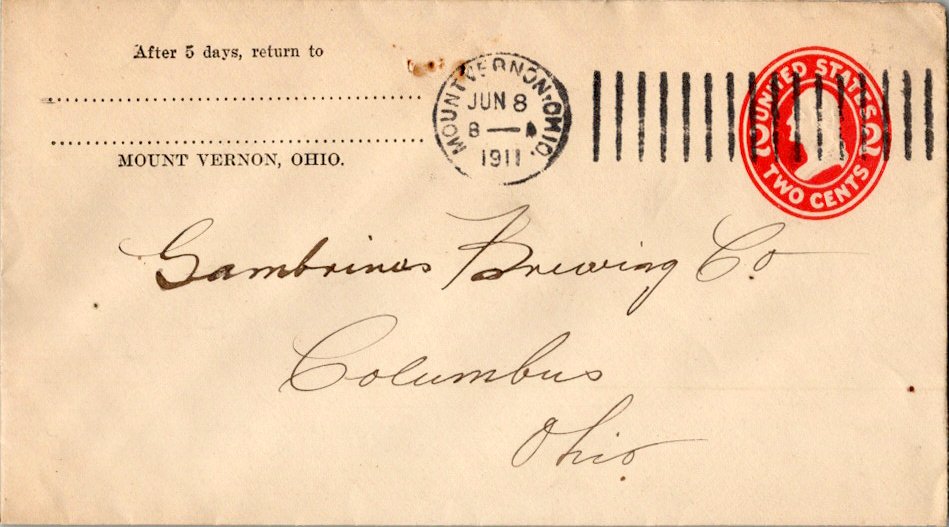 After 5 days, return to
MOUNT VERNON, OHIO.
MOUNT VERNON, OHIO.
JUN 8
8 — A
1911
UNITED STATES
2 2
TWO CENTS
Gambrinus Brewing Co
Columbus
Ohio